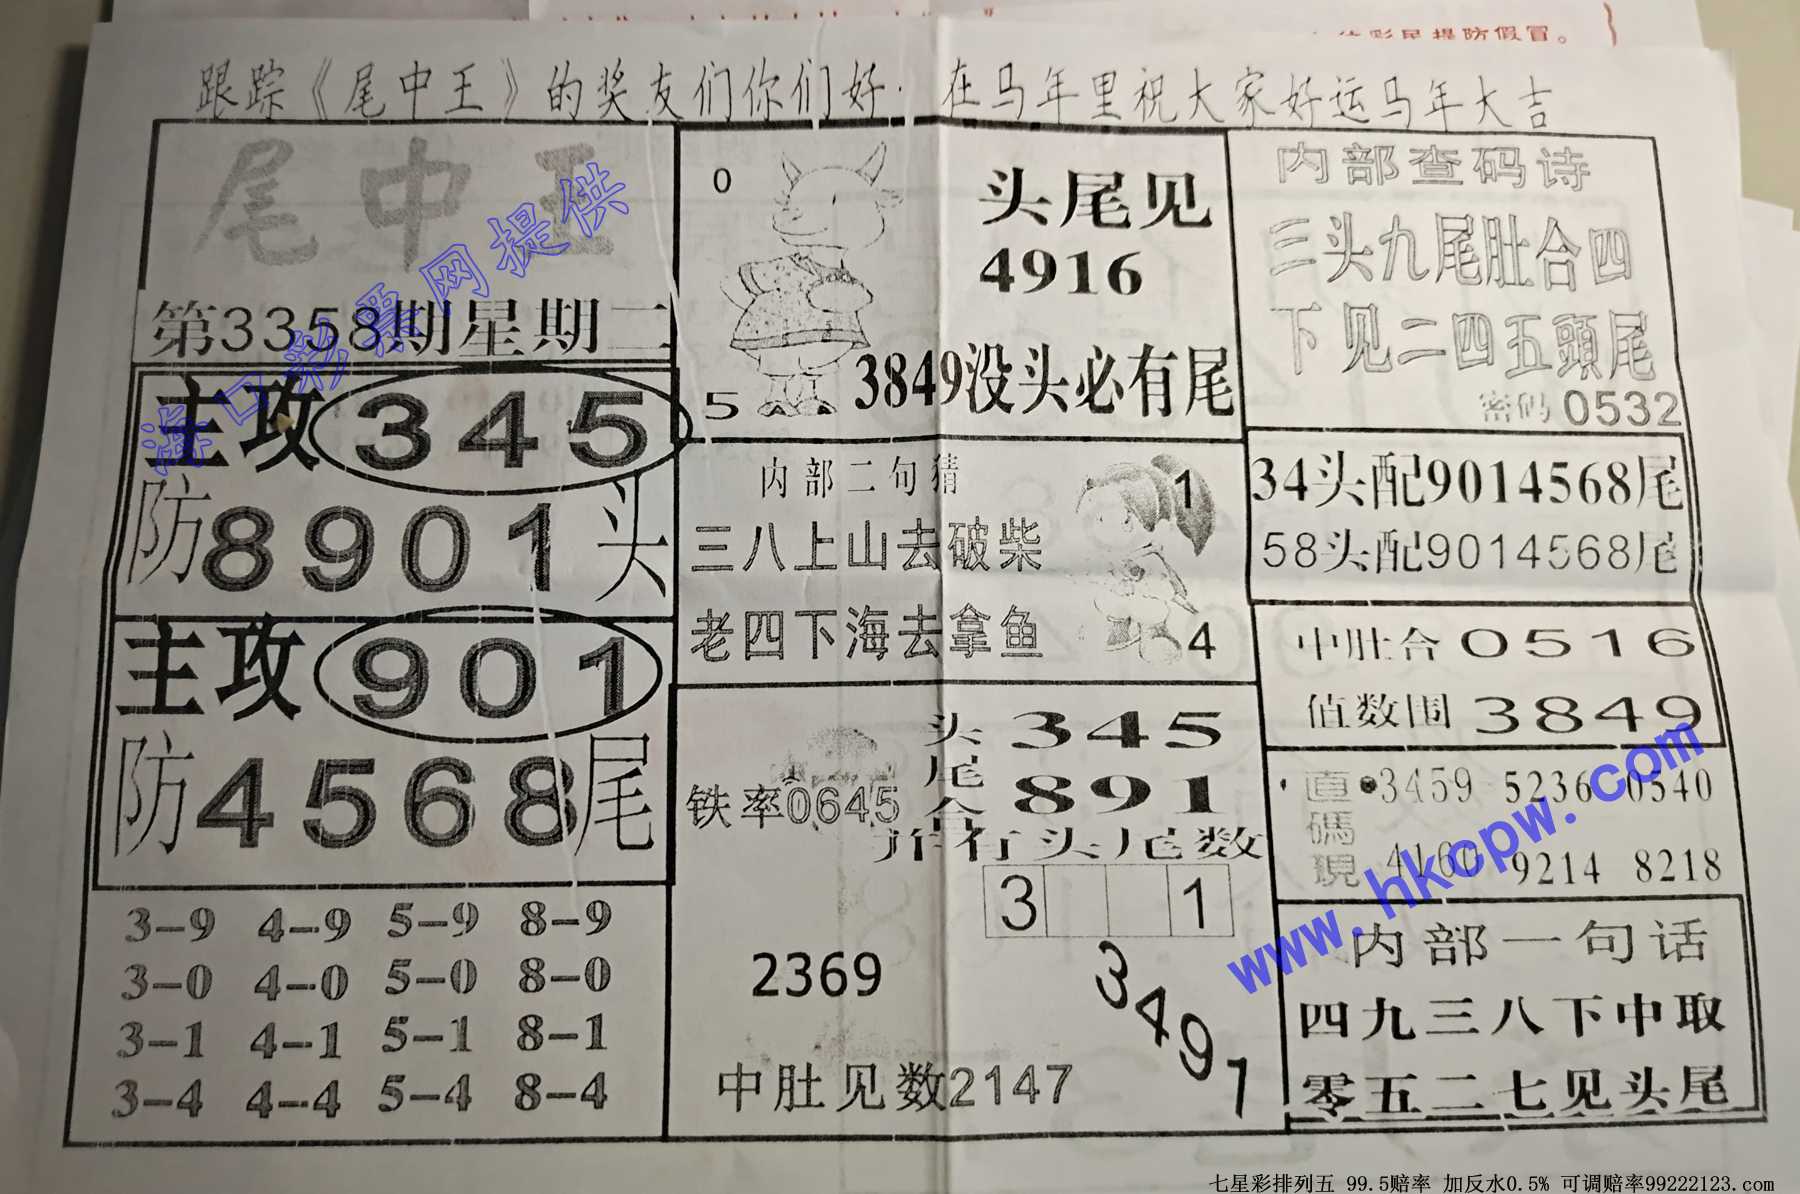 彩民提防假冒。
跟踪《尾中王》的奖友们你们好·在马年里祝大家好运马年大吉
尾中王
第3358期星期二
主攻345
防8901头
主攻901
防4568尾
3-9 4-9 5-9 8-9
3-0 4-0 5-0 8-0
3-1 4-1 5-1 8-1
3-4 4-4 5-4 8-4
0
头尾见
4916
5
3849没头必有尾
内部二句猜
1
三八上山去破柴
老四下海去拿鱼
4
头345
尾
合891
铁率0645
并有头尾数
3 1
2369
3491
中肚见数2147
内部查码诗
三头九尾肚合四
下见二四五頭尾
密码0532
34头配9014568尾
58头配9014568尾
中肚合0516
值数围3849
直碼現
3459 5236 0540
4160 9214 8218
内部一句话
四九三八下中取
零五二七见头尾
海口彩票网提供
www.hkcpw.com
七星彩排列五 99.5赔率 加反水0.5% 可调赔率99222123.com